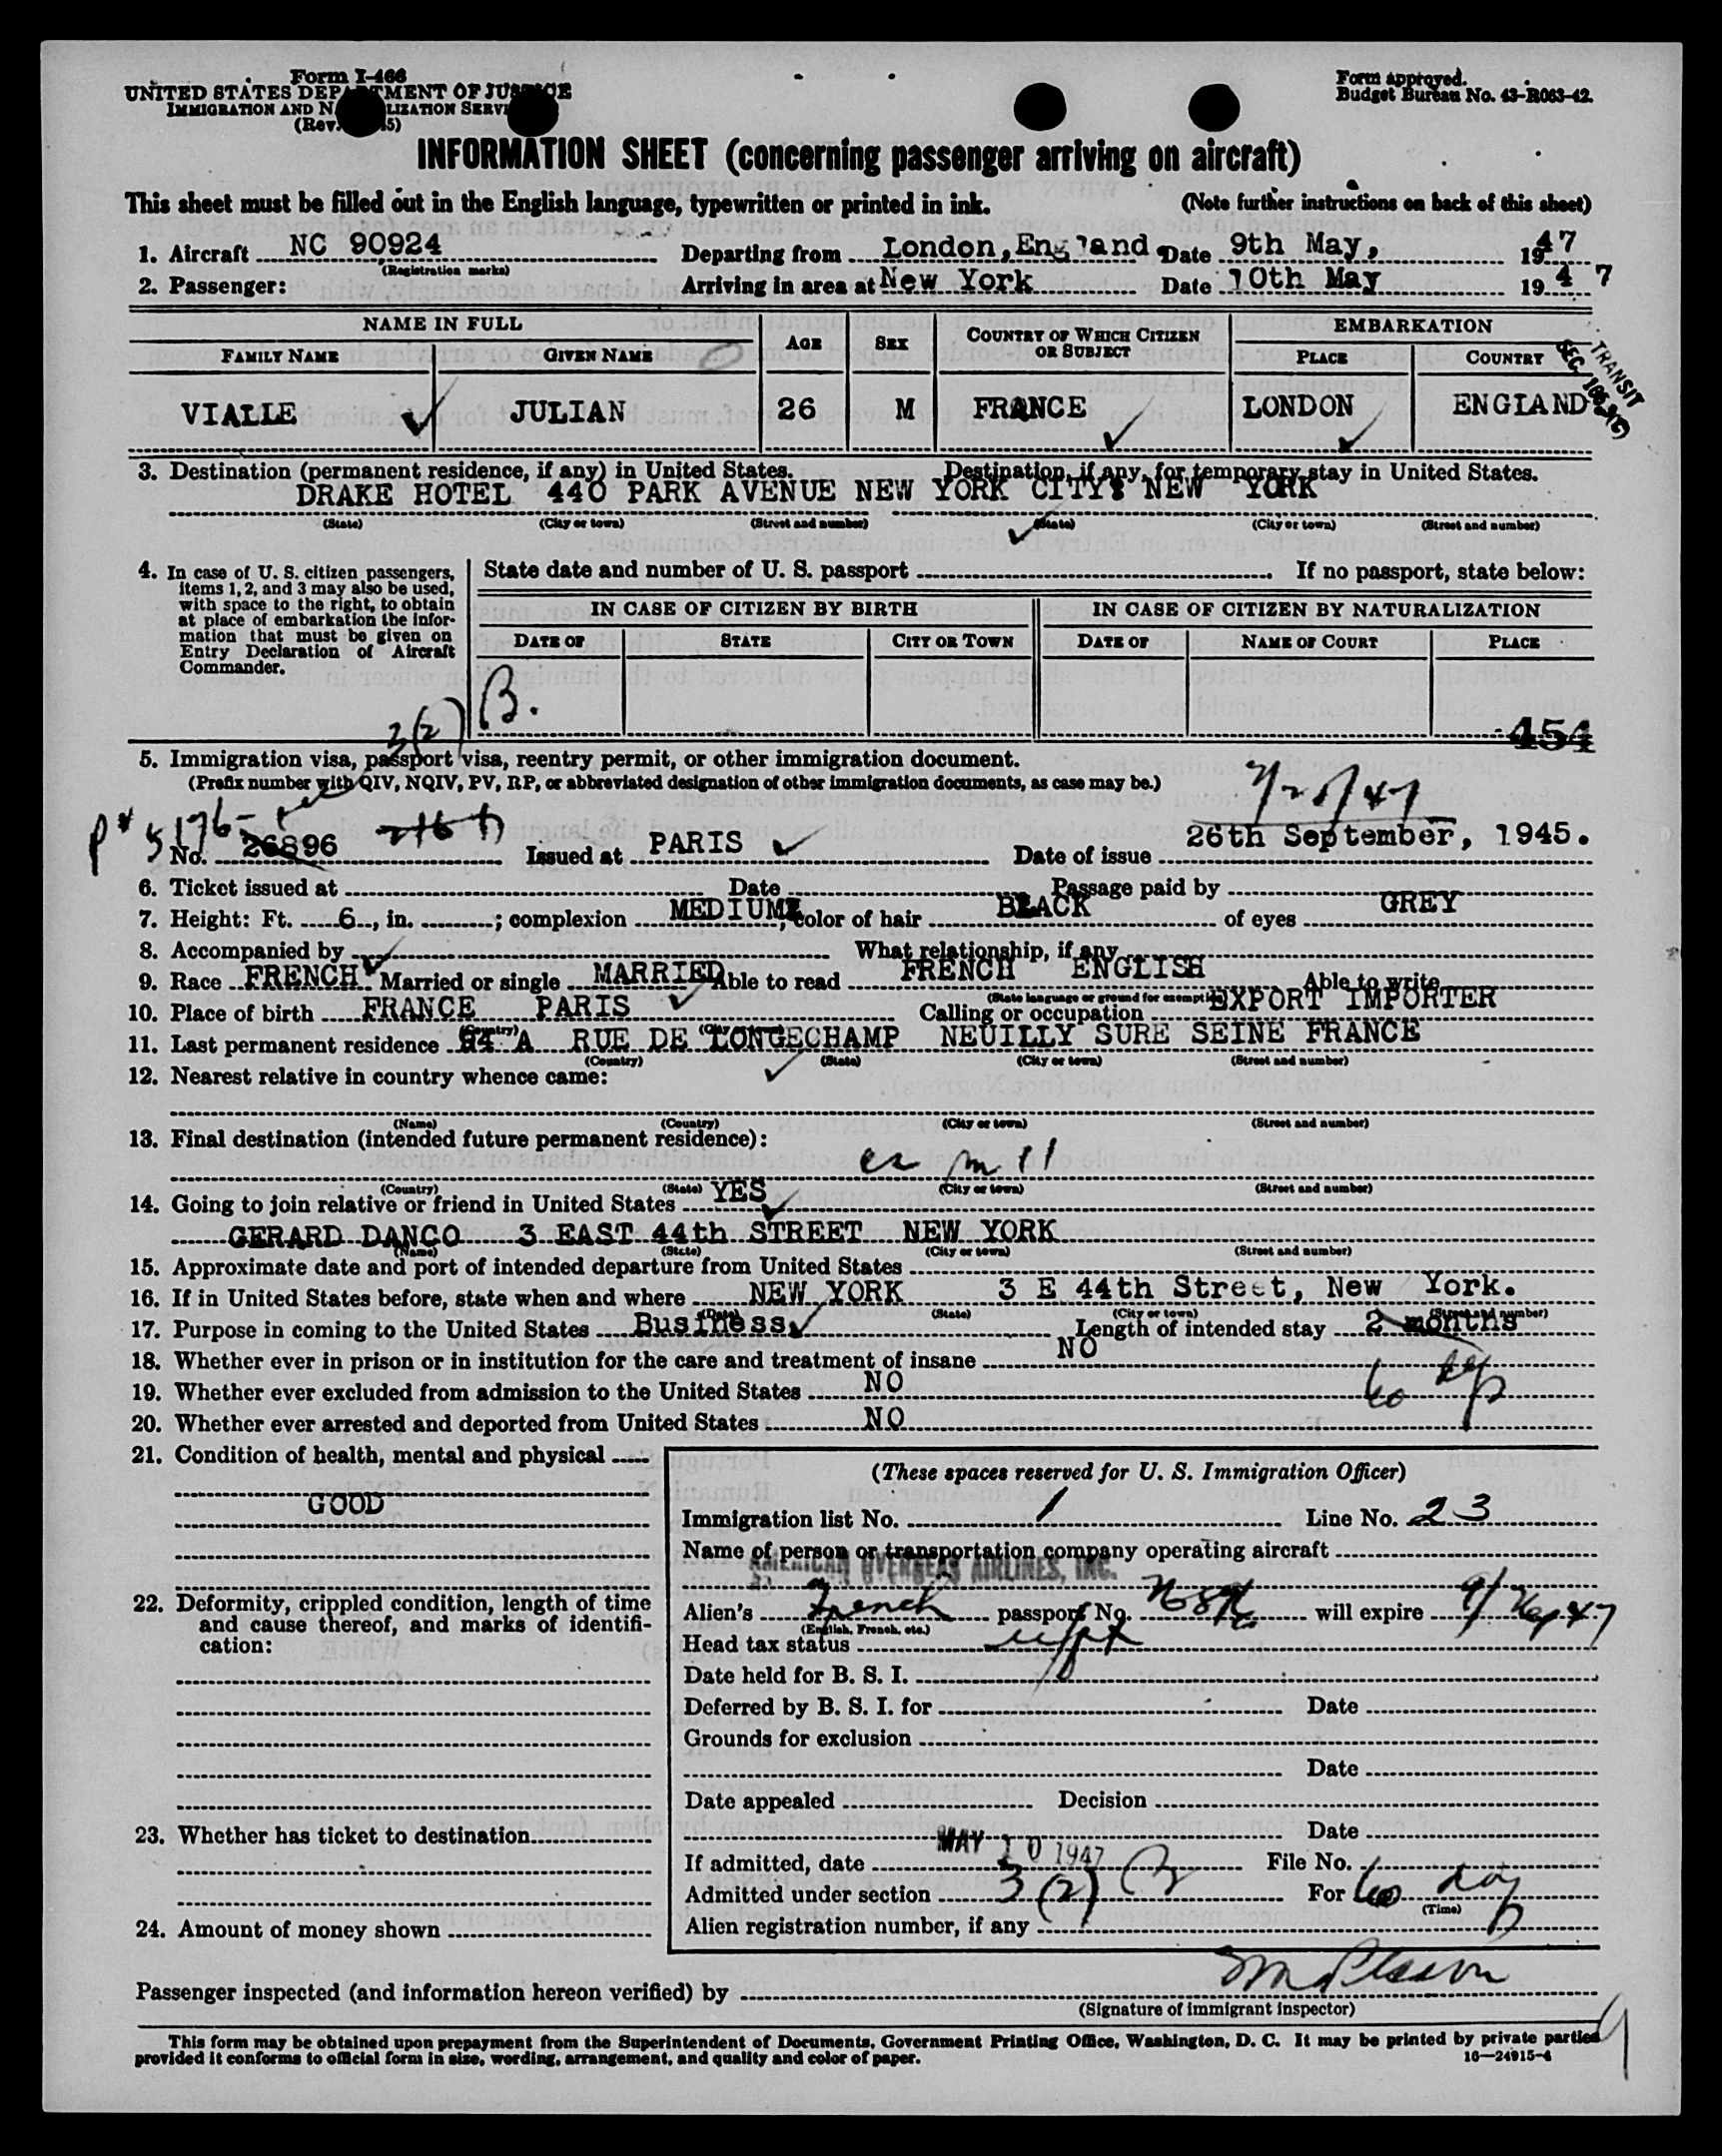 Form I-466
UNITED STATES DEPARTMENT OF JUSTICE
IMMIGRATION AND NATURALIZATION SERVICE
(Rev. 5)
Form approved.
Budget Bureau No. 43-R063-42.
INFORMATION SHEET (concerning passenger arriving on aircraft)
This sheet must be filled out in the English language, typewritten or printed in ink. (Note further instructions on back of this sheet)
1. Aircraft NC 90924 Departing from London, England Date 9th May, 1947
(Registration marks)
2. Passenger: Arriving in area at New York Date 10th May 1947
NAME IN FULL AGE SEX COUNTRY OF WHICH CITIZEN OR SUBJECT EMBARKATION
FAMILY NAME GIVEN NAME PLACE COUNTRY
TRANSIT
VIALLE JULIAN 26 M FRANCE LONDON ENGLAND
3. Destination (permanent residence, if any) in United States. Destination, if any, for temporary stay in United States.
DRAKE HOTEL 440 PARK AVENUE NEW YORK CITY NEW YORK
(State) (City or town) (Street and number) (State) (City or town) (Street and number)
4. In case of U. S. citizen passengers, items 1, 2, and 3 may also be used, with space to the right, to obtain at place of embarkation the information that must be given on Entry Declaration of Aircraft Commander.
State date and number of U. S. passport If no passport, state below:
IN CASE OF CITIZEN BY BIRTH IN CASE OF CITIZEN BY NATURALIZATION
DATE OF STATE CITY OR TOWN DATE OF NAME OF COURT PLACE
B.
3(2)
454
5. Immigration visa, passport visa, reentry permit, or other immigration document.
(Prefix number with QIV, NQIV, PV, RP, or abbreviated designation of other immigration documents, as case may be.)
No. 26896 Issued at PARIS Date of issue 26th September, 1945.
6. Ticket issued at Date Passage paid by
7. Height: Ft. 6, in. ; complexion MEDIUM, color of hair BLACK of eyes GREY
8. Accompanied by What relationship, if any
9. Race FRENCH Married or single MARRIED Able to read FRENCH ENGLISH Able to write
(State language or ground for exemption)
10. Place of birth FRANCE PARIS Calling or occupation EXPORT IMPORTER
(Country) (City or town)
11. Last permanent residence A RUE DE LONGECHAMP NEUILLY SURE SEINE FRANCE
(Country) (State) (City or town) (Street and number)
12. Nearest relative in country whence came:
(Name) (Country) (City or town) (Street and number)
13. Final destination (intended future permanent residence):
(Country) (State) (City or town) (Street and number)
14. Going to join relative or friend in United States YES
GERARD DANCO 3 EAST 44th STREET NEW YORK
(Name) (State) (City or town) (Street and number)
15. Approximate date and port of intended departure from United States
16. If in United States before, state when and where NEW YORK 3 E 44th Street, New York.
(Date) (State) (City or town) (Street and number)
17. Purpose in coming to the United States Business Length of intended stay 2 months
18. Whether ever in prison or in institution for the care and treatment of insane NO
19. Whether ever excluded from admission to the United States NO
20. Whether ever arrested and deported from United States NO
21. Condition of health, mental and physical
GOOD
22. Deformity, crippled condition, length of time and cause thereof, and marks of identification:
23. Whether has ticket to destination
24. Amount of money shown
(These spaces reserved for U. S. Immigration Officer)
Immigration list No. 1 Line No. 23
Name of person or transportation company operating aircraft
AMERICAN OVERSEAS AIRLINES, INC.
Alien's French passport No. will expire
(English, French, etc.)
Head tax status
Date held for B. S. I.
Deferred by B. S. I. for Date
Grounds for exclusion
Date
Date appealed Decision
Date
If admitted, date MAY 10 1947 File No.
Admitted under section 3(2) B For 60 day
(Time)
Alien registration number, if any
Passenger inspected (and information hereon verified) by
(Signature of immigrant inspector)
This form may be obtained upon prepayment from the Superintendent of Documents, Government Printing Office, Washington, D. C. It may be printed by private parties
provided it conforms to official form in size, wording, arrangement, and quality and color of paper. 16—24915-4